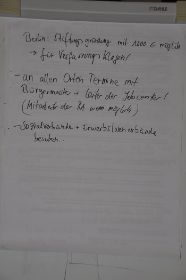 Berlin: Stiftungsgründung mit 1000 € möglich
→ für Verfassungsklagen!
- an allen Orten Termine mit
Bürgermeister + Leiter der Jobcenter!
(Mitarbeiter der BA wenn möglich)
- Sozialverbände + Erwerbslosenverbände
besuchen